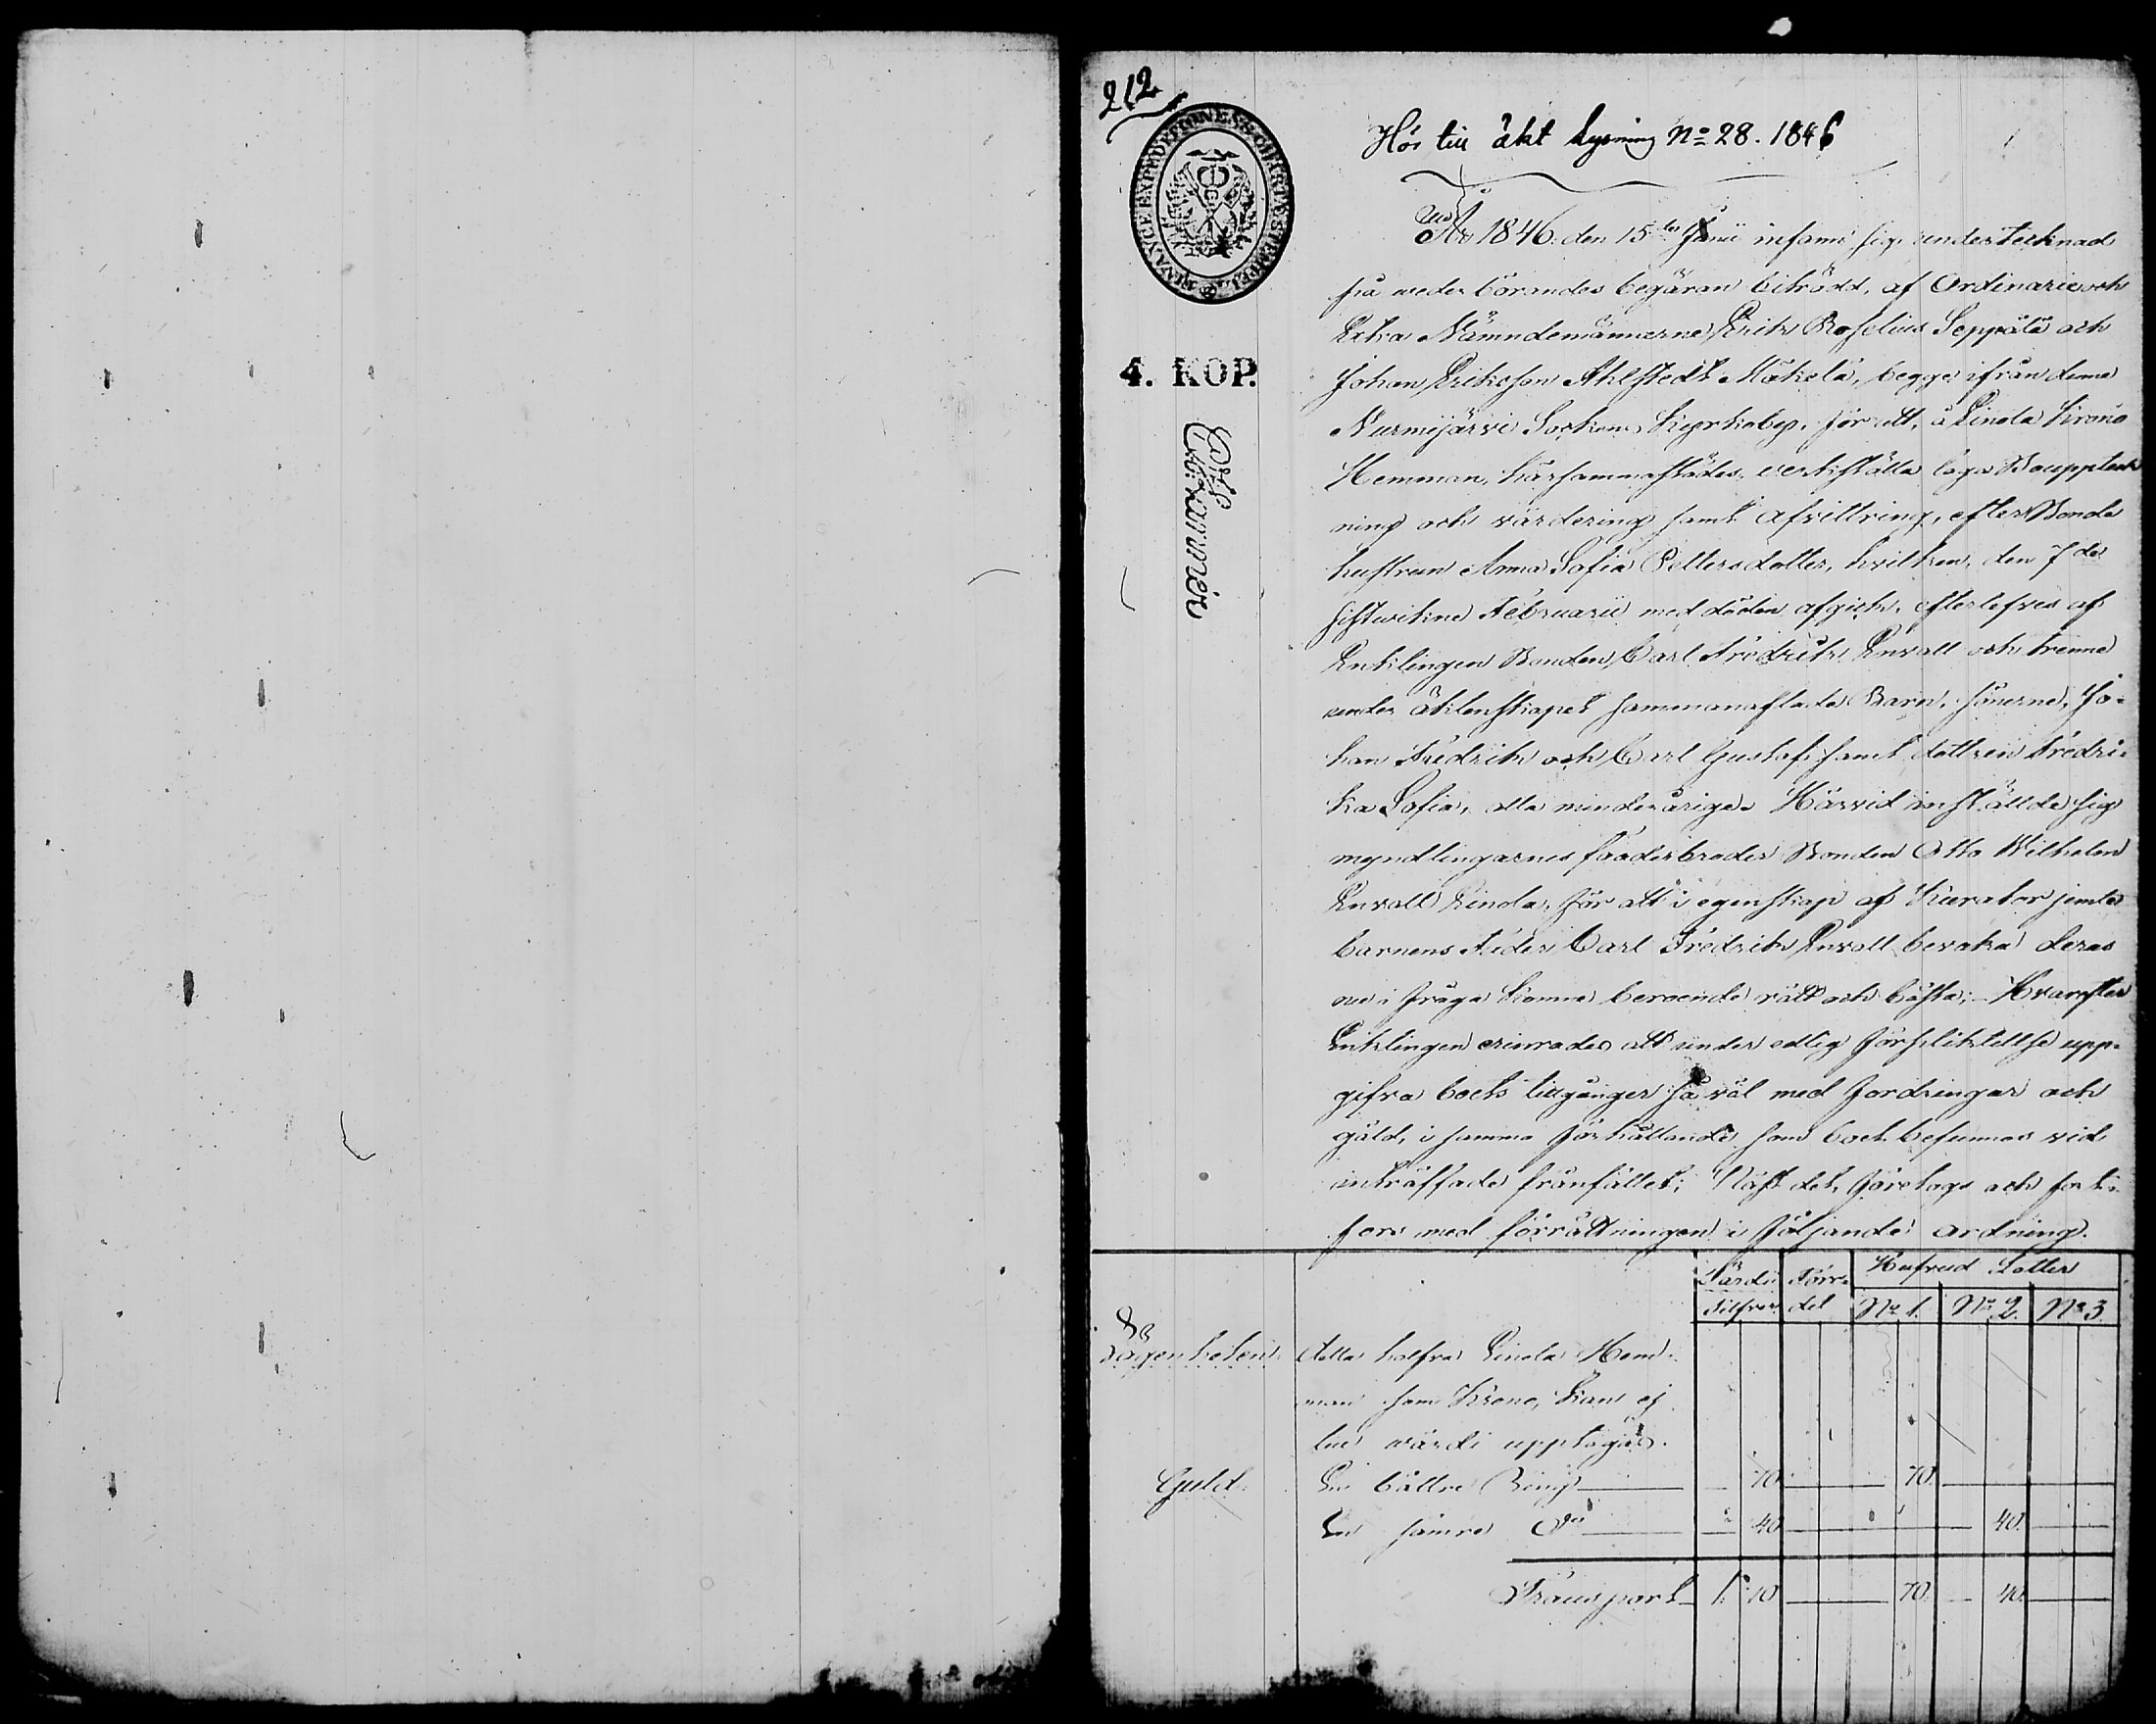 212
Hör till äkt lysning No 28. 1846
FINANCE EXPEDITIONENS CHARTÆ STEMPEL
4. KOP.
År 1846 den 15de Junii infann sig undertecknad
på wederbörandes begäran biträdd, af Ordinarie och
Extra Nämndemännerne Erik Roselius Seppälä och
Johan Eriksson Ahlstedt Mäkelä, begge ifrån denna
Nurmijärvi Socken, Kyrkoby, för att, å Einola Krono
Hemman, härsammastädes, verkställa laga Bouppteck
ning och värdering samt afvittring, efter Bonde
hustrun Anna Sofia Pettersdotter, hvilken, den 7de
sistwikne Februarii med döden afgick, efterlefves af
Enklingen Bonden Carl Fredrik Envall och trenne
under äktenskapet sammanaflade Barn, sönerne, Jo-
han Fredrik och Carl Gustaf samt dottren Fredri-
ka Sofia, alla minderåriga. Härvid inställde sig
myndlingarnes faderbroder Bonden Otto Wilhelm
Envall Einola, för att i egenskap af Kurator jemte
barnens Fader Carl Fredrik Envall bevaka deras
nu i fråga komne beroende rätt och bästa; Hvarefter
Enklingen erinrades att under edlig förpliktellse upp-
gifva boets tillgånger så väl med fordringar och
gäld, i samma förhållande som boet befunnes vid
inträffade frånfället; Näst det, företogs och fort-
fors med förrättningen i följande ordning.
Värde Silfver
Förr- del
Hufvud Lotter
No 1. No 2. No 3.
Lägenheten
Detta halfva Einola Hem-
man som Krono, kan ej
till värde upptagas.
Guld.
En bättre Ring 70. 70.
En sämre Do 40 40.
Transport 1. 10 70. 40.